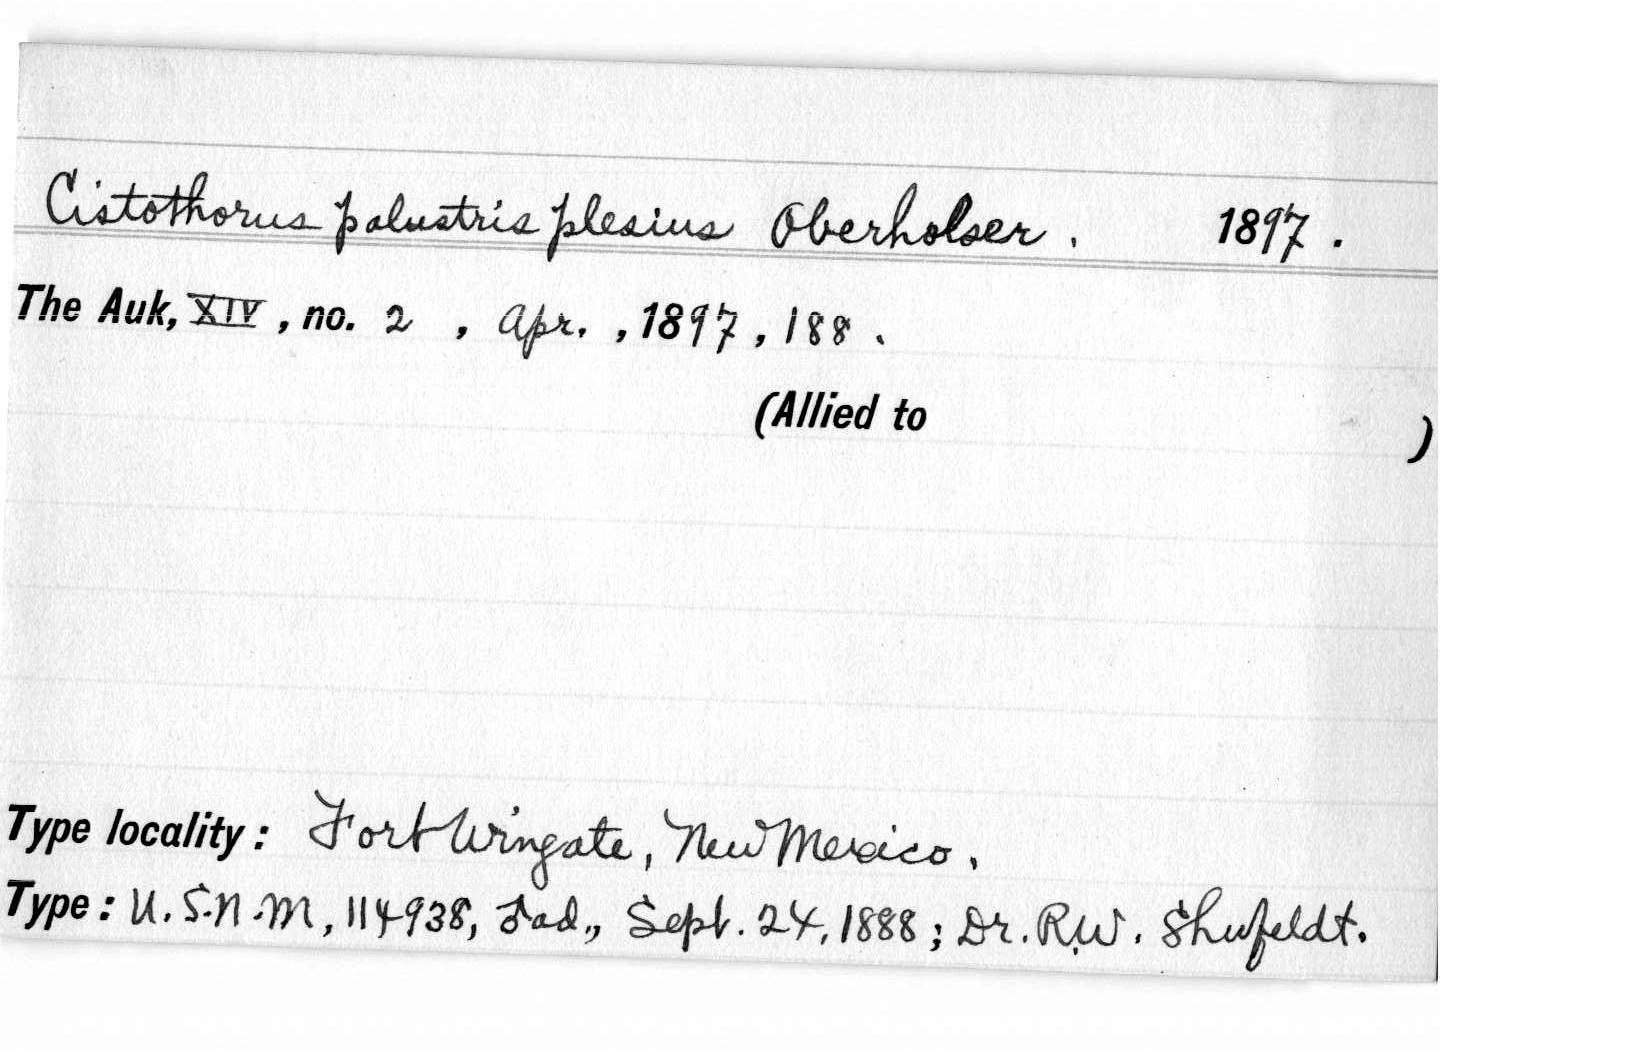 Cistothorus palustris plesius Oberholser. 1897.
The Auk, XIV, no. 2, Apr., 1897, 188.
(Allied to )
Type locality: Fort Wingate, New Mexico.
Type: U.S.N.M, 114938, ad., Sept. 24, 1888; Dr. R.W. Shufeldt.